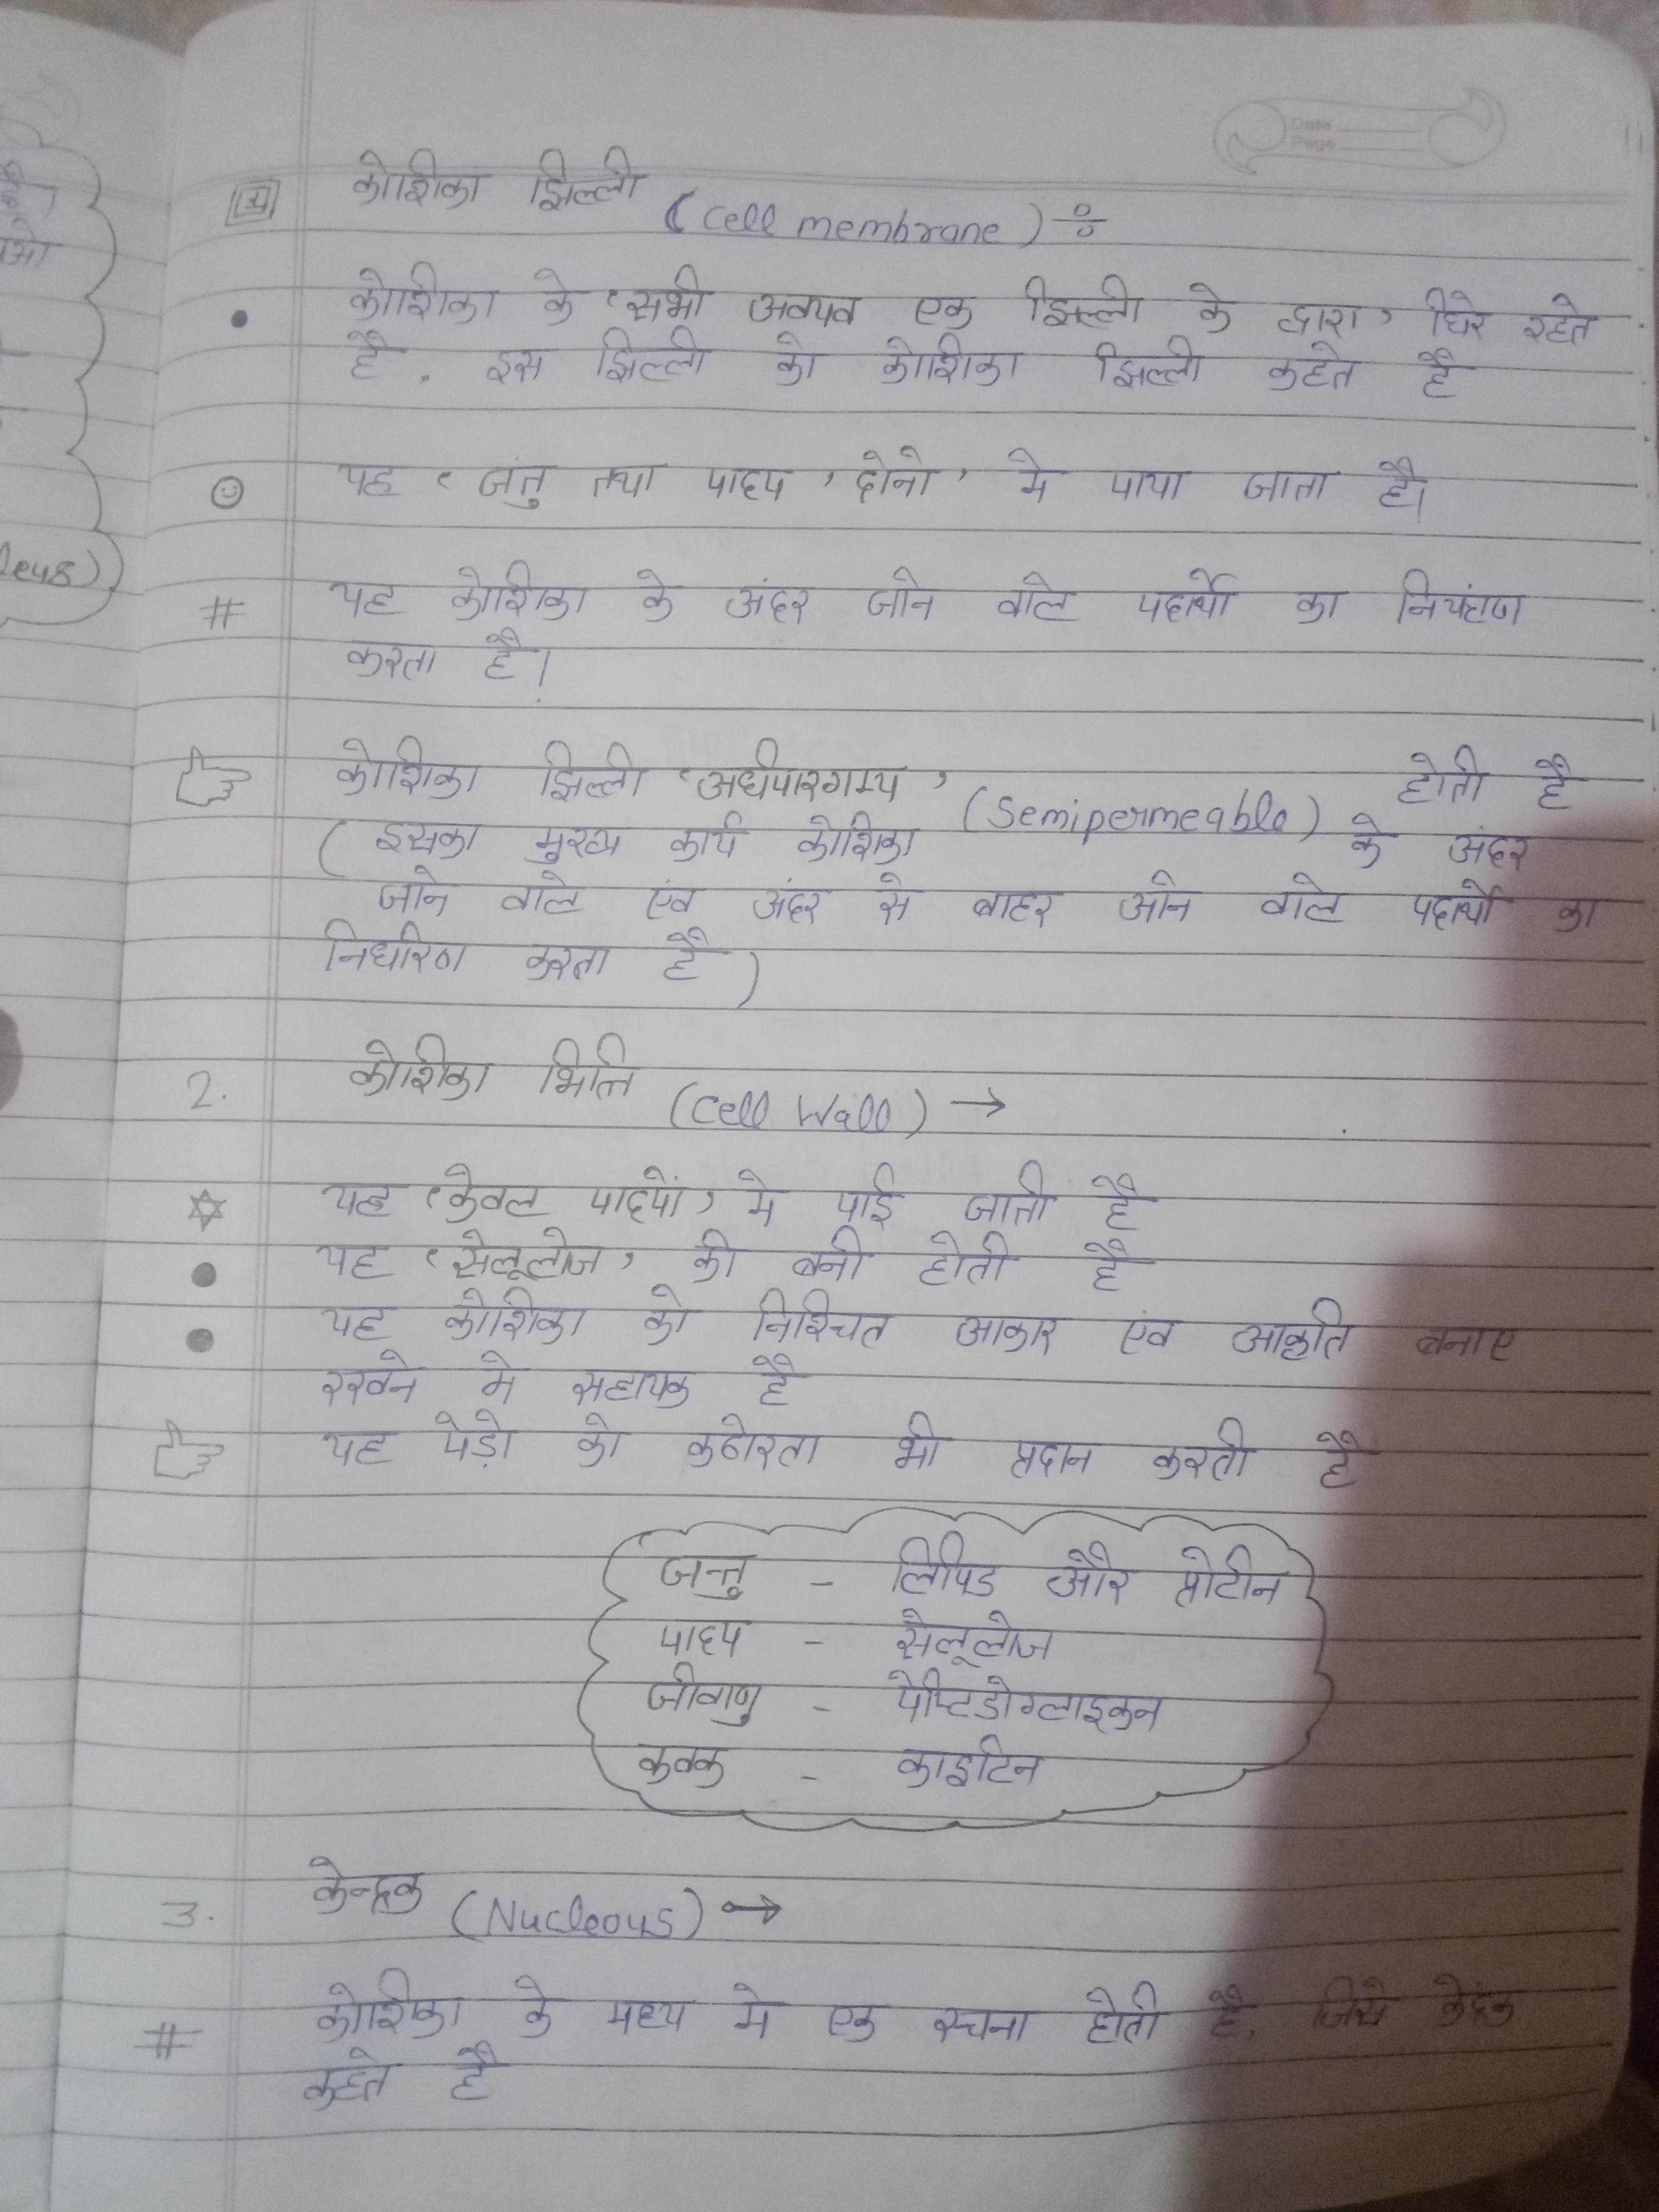 Date
Page
कोशिका झिल्ली (Cell membrane) ÷
कोशिका के 'सभी अवयव एक झिल्ली के द्वारा' घिरे रहते
है, इस झिल्ली को कोशिका झिल्ली कहते है
यह 'जंतु तथा पादप 'दोनो' मे पाया जाता है।
# यह कोशिका के अंदर जाने वाले पदार्थो का नियंत्रण
करता है।
कोशिका झिल्ली 'अर्धपारगम्य' (Semipermeable) होती है
( इसका मुख्य कार्य कोशिका के अंदर
जाने वाले एंव अंदर से बाहर आने वाले पदार्थो का
निर्धारण करता है)
2. कोशिका भित्ति (Cell Wall) →
यह 'केवल पादपों' मे पाई जाती है
यह 'सेलूलोज' की बनी होती है
यह कोशिका को निश्चित आकार एंव आकृति बनाए
रखने मे सहायक है
यह पेड़ो को कठोरता भी प्रदान करती है
जन्तु - लिपिड और प्रोटीन
पादप - सेलूलोज
जीवाणु - पेप्टिडोग्लाइकन
कवक - काइटिन
3. केन्द्रक (Nucleous) →
# कोशिका के मध्य मे एक रचना होती है, जिसे केंद्रक
कहते है
leus)